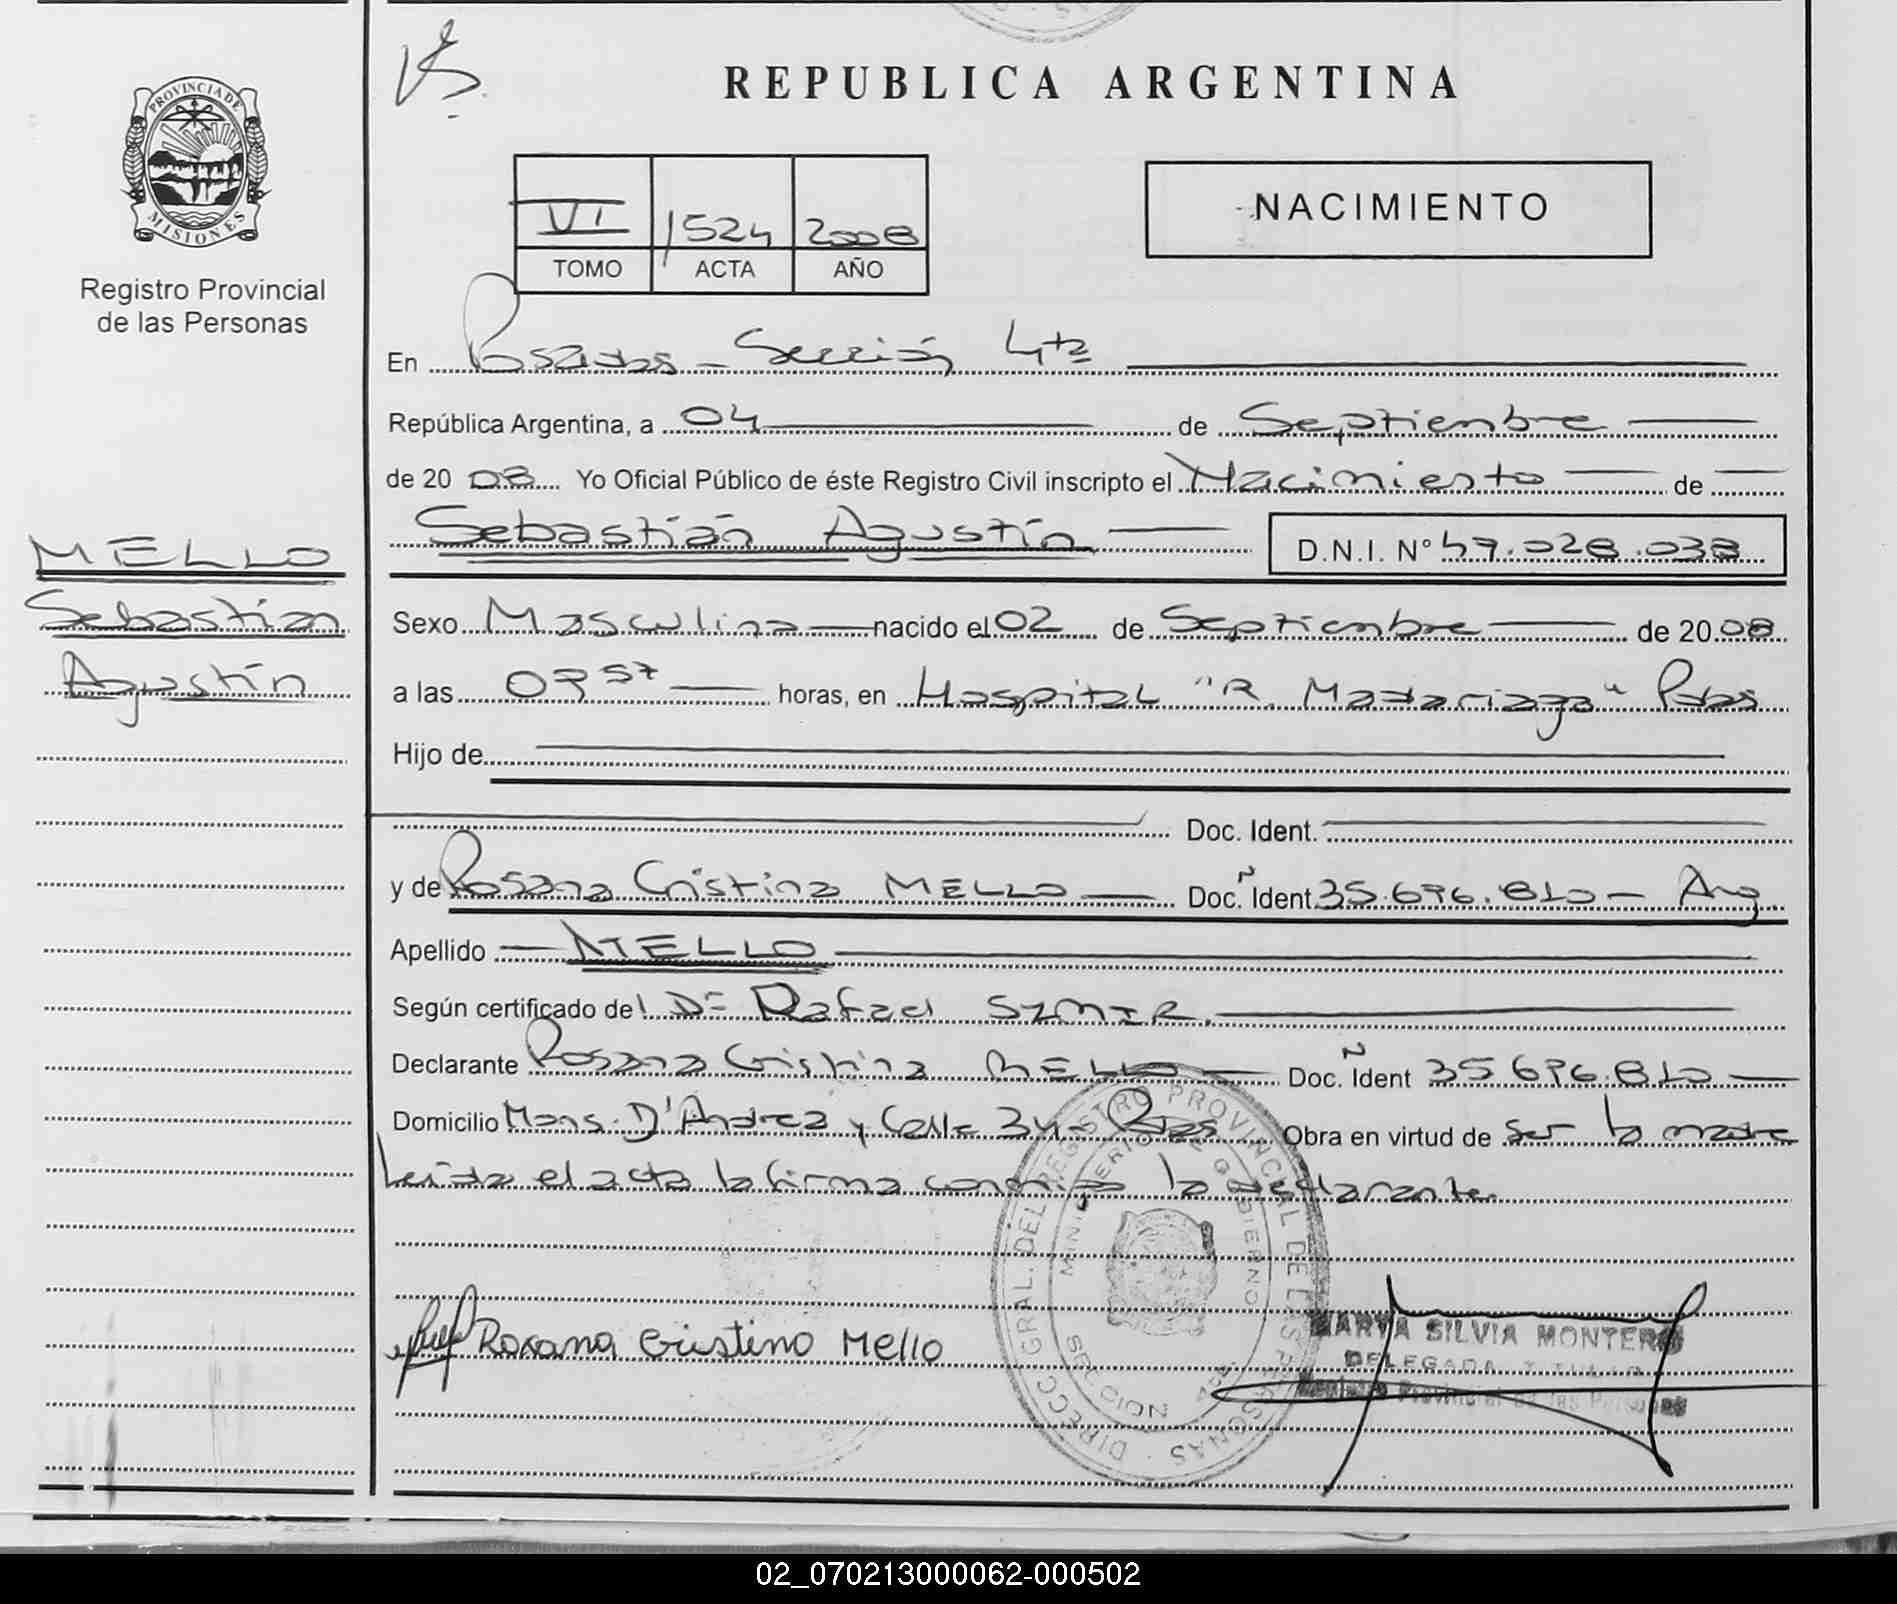 REPUBLICA ARGENTINA
PROVINCIA DE
MISIONES
Registro Provincial
de las Personas
VI 1524 2008
TOMO ACTA AÑO
NACIMIENTO
En Posadas - Sección 4ta
República Argentina, a 04 de Septiembre
de 20 08 Yo Oficial Público de éste Registro Civil inscripto el Nacimiento de
Sebastián Agustín D.N.I. Nº 49.028.038
MELLO
Sebastian
Agustín
Sexo Masculino nacido el 02 de Septiembre de 20 08
a las 07 57 horas, en Hospital "R. Madariaga" Pdas
Hijo de
Doc. Ident.
y de Rosana Cristina MELLO Doc. Ñ Ident. 35.696.810 - Arg.
Apellido MELLO
Según certificado del Dr Rafael
Declarante Rosana Cristina MELLO Doc. Ñ Ident 35.696.810
Domicilio Mons. D'Andrea y Calle 34 - Pdas Obra en virtud de ser la madre
Leída el acta la firma conmigo la declarante.
DIRECC. GRAL. DEL REGISTRO PROVINCIAL DE LAS PERSONAS
MINISTERIO DE GOBIERNO
Roxana Cristina Mello
MARTA SILVIA MONTERO
DELEGADA TITULAR
Registro Provincial de las Personas
02_070213000062-000502